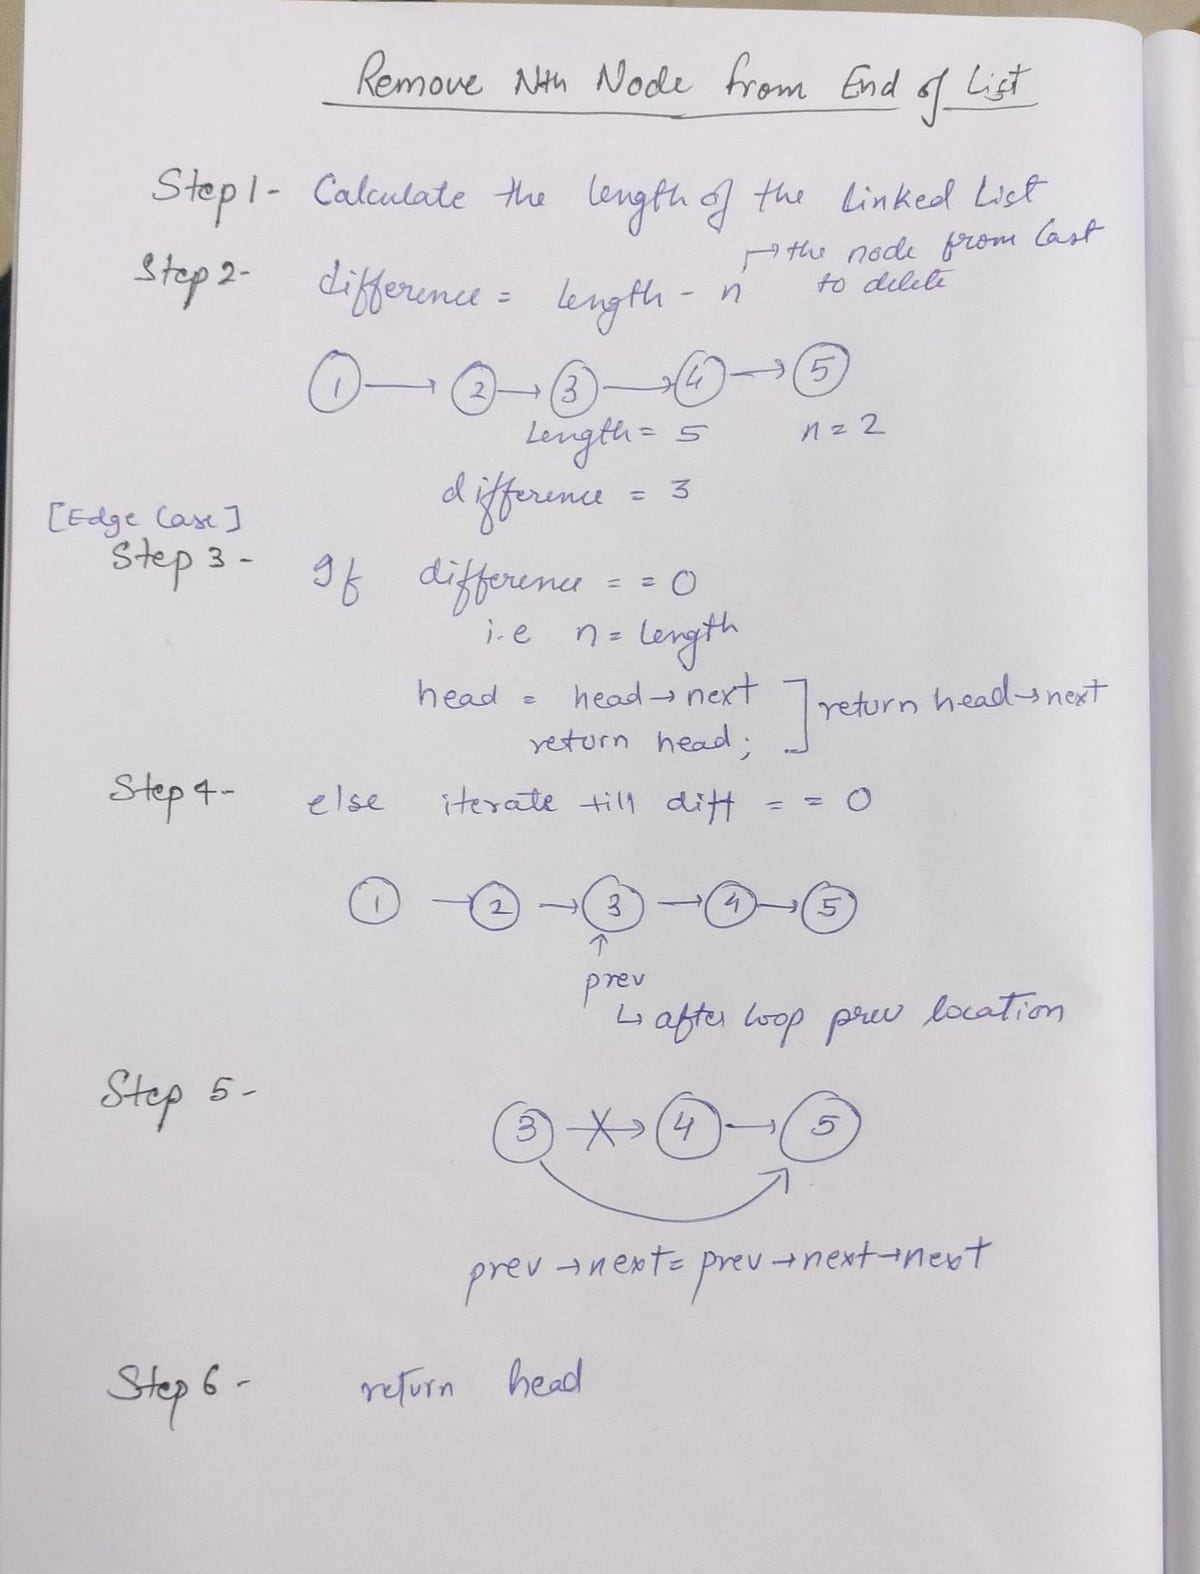 Remove Nth Node from End of List
Step 1- Calculate the length of the Linked List
Step 2- difference = length - n ↦ the node from last
to delete
1 → 2 → 3 → 4 → 5
Length = 5 n = 2
difference = 3
[Edge Case]
Step 3- If difference == 0
i.e n = length
head = head→next ] return head→next
return head;
Step 4- else iterate till diff == 0
1 → 2 → 3 → 4 → 5
↑
prev
↳ after loop prev location
Step 5- 3 → 4 → 5
prev→next = prev→next→next
Step 6- return head